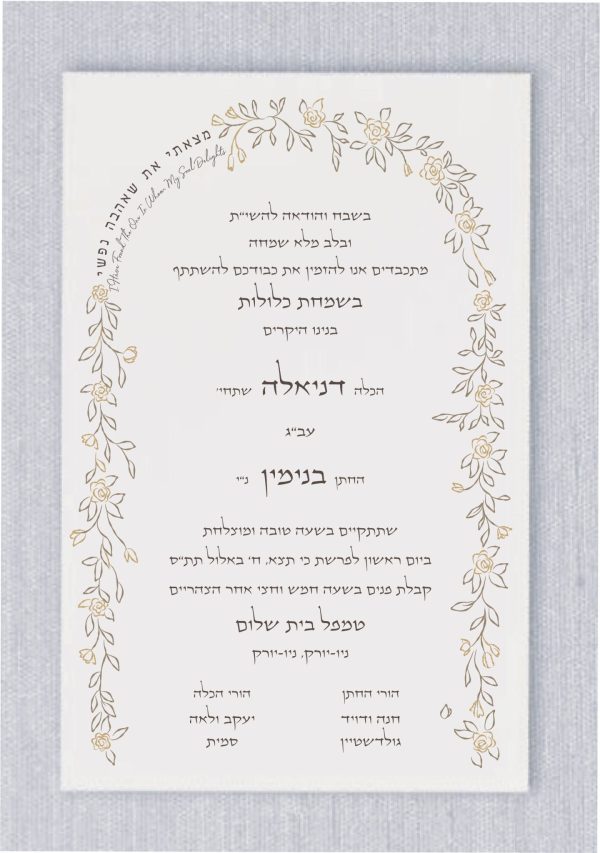 מצאתי את שאהבה נפשי
I Have Found the One In Whom My Soul Delights
בשבח והודאה להשי״ת
ובלב מלא שמחה
מתכבדים אנו להזמין את כבודכם להשתתף
בשמחת כלולות
בנינו היקרים
הכלה דניאלה שתחי׳
עב״ג
החתן בנימין נ״י
שתתקיים בשעה טובה ומוצלחת
ביום ראשון לפרשת כי תצא, ח׳ באלול תת״ס
קבלת פנים בשעה חמש וחצי אחר הצהריים
טמפל בית שלום
ניו-יורק, ניו-יורק
הורי החתן
חנה ודויד
גולדשטיין
הורי הכלה
יעקב ולאה
סמית